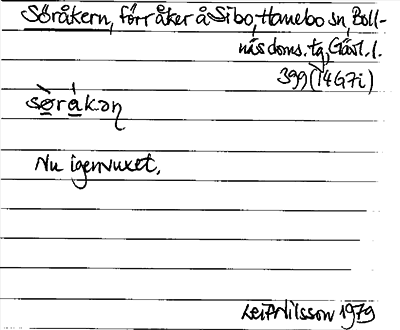 Söråkern, förr åker å Sibo, Hanebo sn, Boll-
näs doms. tg, Gävl. l.
399 (14G7i)
sørákaɳ
Nu igenvuxet.
Leif Nilsson 1979